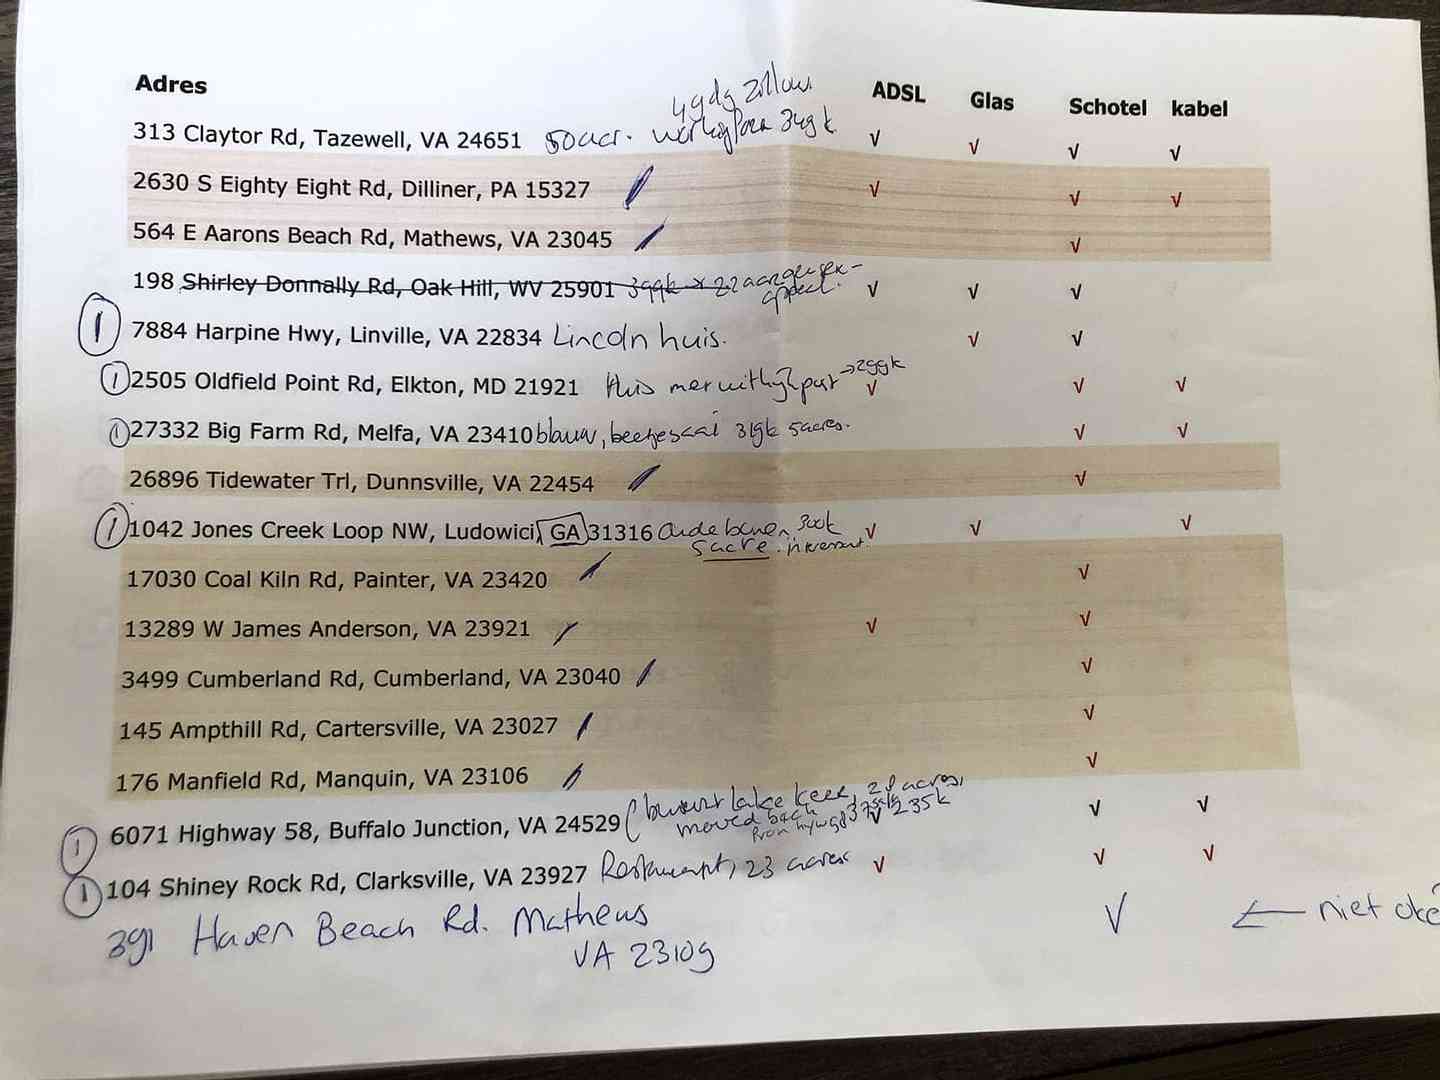 Adres ADSL Glas Schotel kabel
49dg Zillow
313 Claytor Rd, Tazewell, VA 24651 50acr. 349k √ √ √ √
2630 S Eighty Eight Rd, Dilliner, PA 15327 √ √ √
564 E Aarons Beach Rd, Mathews, VA 23045 √
198 Shirley Donnally Rd, Oak Hill, WV 25901 399k 22 √ √ √
7884 Harpine Hwy, Linville, VA 22834 Lincoln huis. √ √
2505 Oldfield Point Rd, Elkton, MD 21921 →299k √ √ √
27332 Big Farm Rd, Melfa, VA 23410 blauw, beetje saai 319k 5acres. √ √
26896 Tidewater Trl, Dunnsville, VA 22454 √
1042 Jones Creek Loop NW, Ludowici, GA 31316 300k √ √ √
5acre
17030 Coal Kiln Rd, Painter, VA 23420 √
13289 W James Anderson, VA 23921 √ √
3499 Cumberland Rd, Cumberland, VA 23040 √
145 Ampthill Rd, Cartersville, VA 23027 √
176 Manfield Rd, Manquin, VA 23106 √
6071 Highway 58, Buffalo Junction, VA 24529 lake acres, √ √ √
moved back from 235k
104 Shiney Rock Rd, Clarksville, VA 23927 Restaurant, 23 acres √ √ √
391 Haven Beach Rd. Mathews √ ← niet oke?
VA 23109